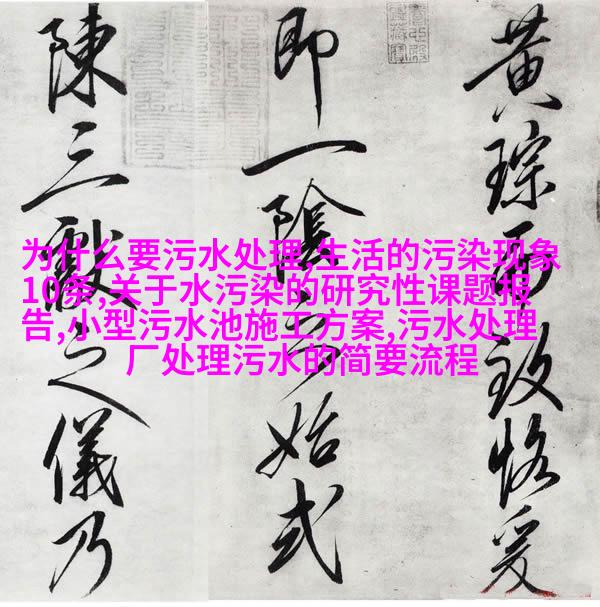 黄琮而致恪爰
即一陰之始式
陳三獻之儀乃
为什么要污水处理,生活的污染现象
10条,关于水污染的研究性课题报
告,小型污水池施工方案,污水处理
厂处理污水的简要流程